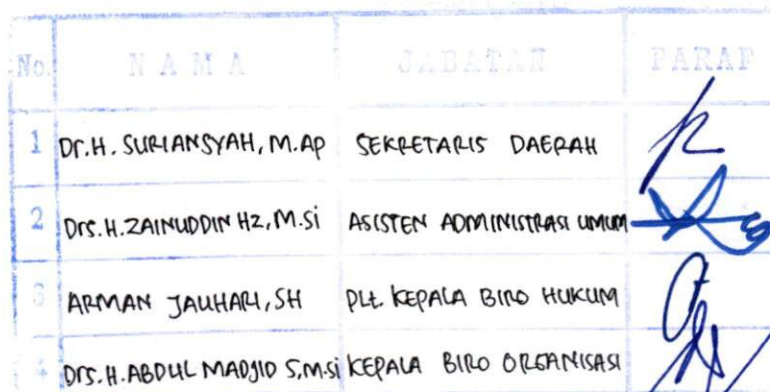 No. NAMA JABATAN PARAF
1 Dr.H. SURIANSYAH, M.AP SEKRETARIS DAERAH
2 Drs.H.ZAINUDDIN HZ, M.Si ASISTEN ADMINISTRASI UMUM
3 ARMAN JAUHARI, SH PLt. KEPALA BIRO HUKUM
4 Drs.H.ABDUL MADJID S,M.Si KEPALA BIRO ORGANISASI